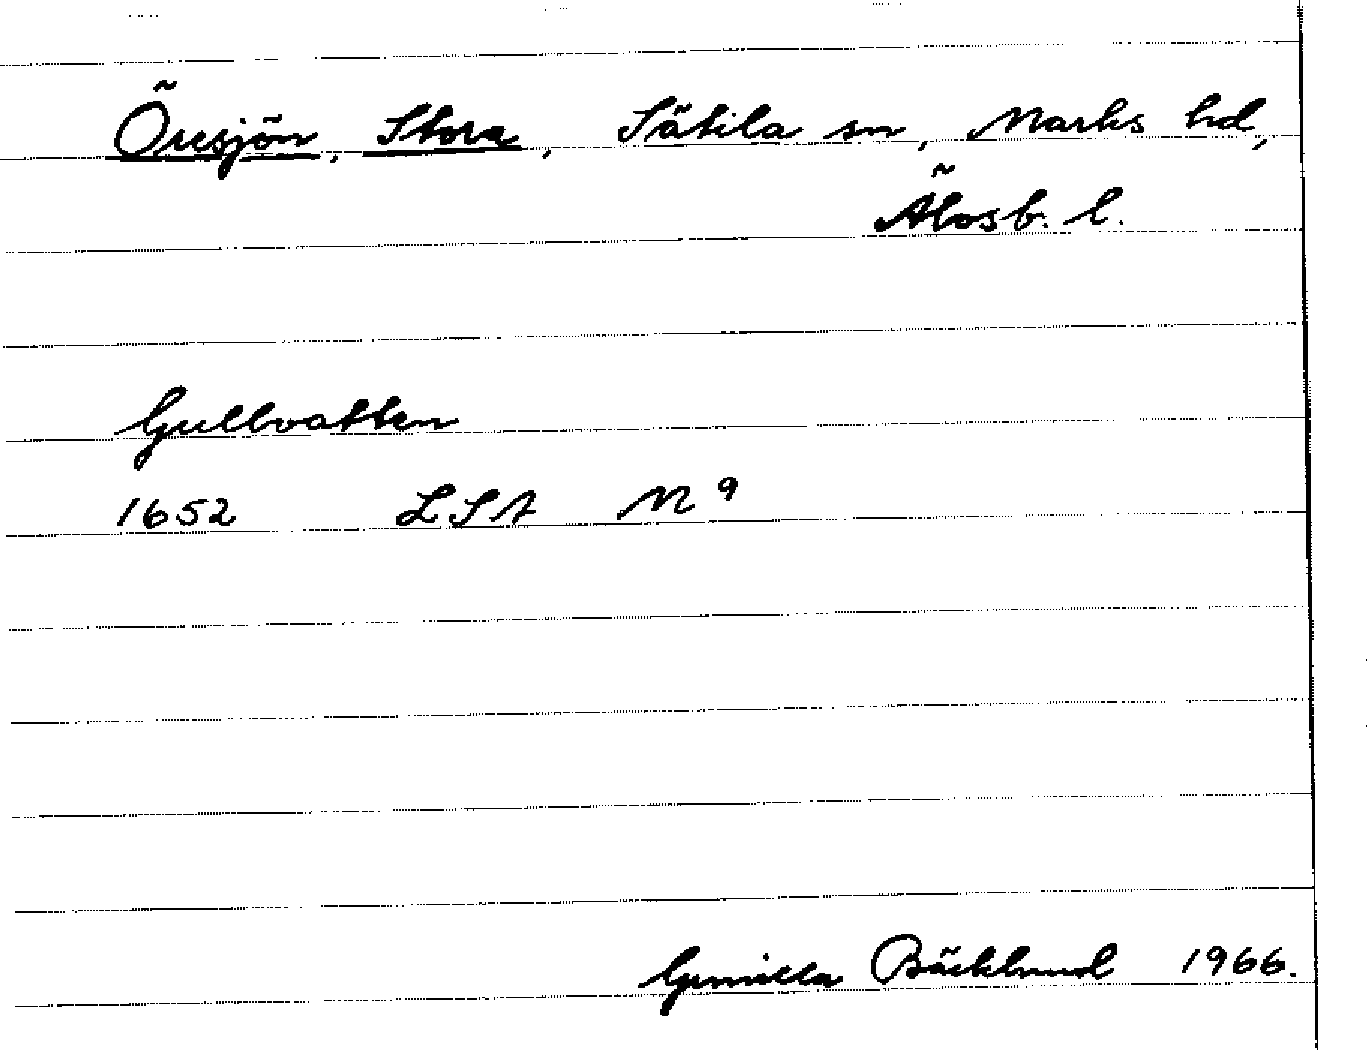 Öresjön, Stora, Sätila sn, Marks hd,
Älvsb. l.
Gullvatten
1652 LSA M 9
Gunilla Bäcklund 1966.